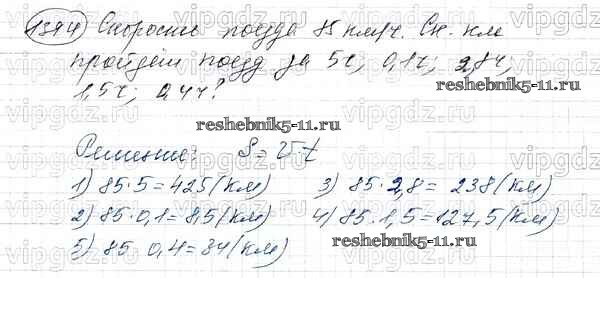 1394) Скорость поезда 85 км/ч. Ск. км
пройдёт поезд за 5ч; 0,1ч; 2,8ч;
1,5ч; 0,4ч?
reshebnik5-11.ru
reshebnik5-11.ru
Решение: S = V·t
1) 85·5=425(км) 3) 85·2,8= 238(км)
2) 85·0,1=8,5(км) 4) 85·1,5=127,5(км)
5) 85 0,4=34(км)
reshebnik5-11.ru
vipgdz.ru